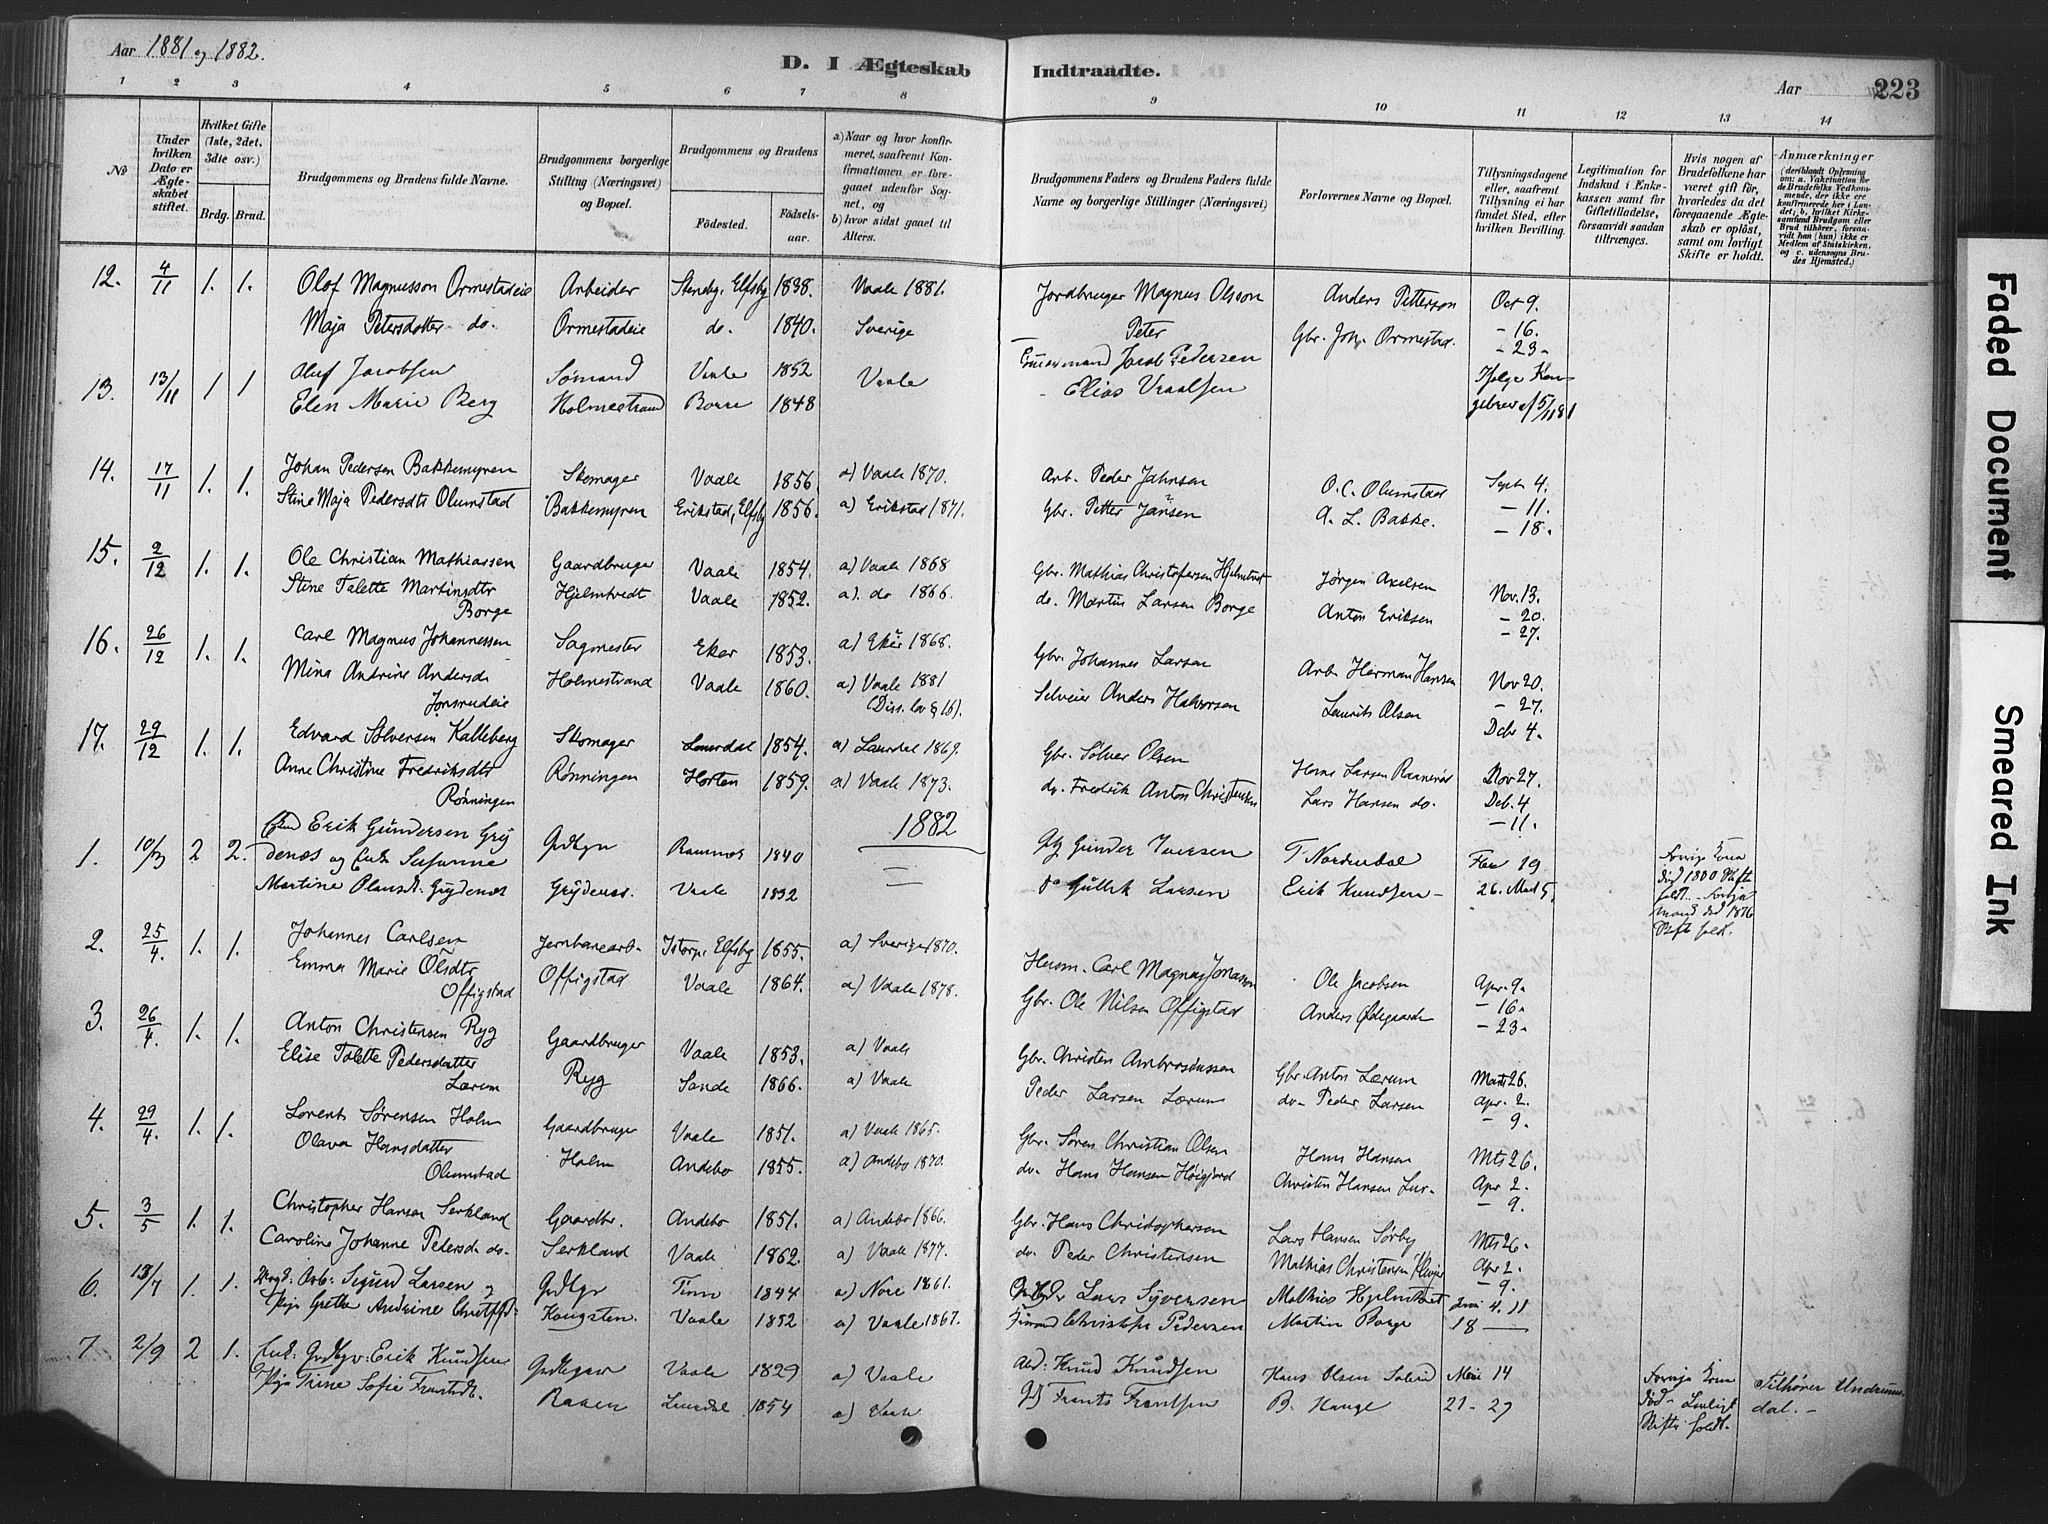 Aar 1881 og 1882.
D. I Ægteskab Indtraadte.
Aar 223
1 2 3 4 5 6 7 8 9 10 11 12 13 14
No
Under hvilken Dato er Ægteskabet stiftet.
Hvilket Gifte (1ste, 2det, 3die osv.)
Brdg. Brud.
Brudgommens og Brudens fulde Navne.
Brudgommens borgerlige Stilling (Næringsvei) og Bopæl.
Brudgommens og Brudens
Födested. Födselsaar.
a) Naar og hvor konfirmeret, saafremt Konfirmationen er foregaaet udenfor Sognet, og
b) hvor sidst gaaet til Alters.
Brudgommens Faders og Brudens Faders fulde Navne og borgerlige Stillinger (Næringsvei)
Forlovernes Navne og Bopæl.
Tillysningsdagene eller, saafremt Tillysning ei har fundet Sted, efter hvilken Bevilling.
Legitimation for Indskud i Enkekassen samt for Giftetilladelse, forsaavidt saadan tiltrænges.
Hvis nogen af Brudefolkene har været gift för, hvorledes da det foregaaende Ægteskab er oplöst, samt om lovligt Skifte er holdt.
Anmærkninger (deriblandt Oplysning om: a. Vakcination for de Brudefolks Vedkommende, der ikke ere konfirmerede her i Landet; b. hvilket Kirkesamfund Brudgom eller Brud tilhører, forsaavidt han (hun) ikke er Medlem af Statskirken, og c. udensogns Brudes Hjemsted.)
12. 4/11 1. 1. Olof Magnusson Ormestadeie Arbeider Stenby, Elfsby 1838. Vaale 1881. Jordbruger Magnus Olsson Anders Petterson Oct 9.
Maja Petersdotter do. Ormestadeie do. 1840. Sverige Peter Gbr. Joh. Ormestad. - 16.
- 23-
13. 13/11 1 1 Oluf Jacobsen Sømand Vaale 1852 Vaale Jacob Pedersen Ifølge Kon
Elen Marie Berg Holmestrand Borre 1848 Elias Vraalsen gebrev af 5/11 81
14. 17/11 1. 1. Johan Pedersen Bakkemyren Skomager Vaale 1856. a) Vaale 1870. Arb. Peder Jahnsen O. C. Olumstad Sept 4.
Stine Maja Pedersdtr Olumstad Bakkemyren Erikstad, Elfsby 1856. a) Erikstad 1871. Gbr. Petter Jansen A. L. Bakke. - 11.
- 18.
15. 2/12 1. 1. Ole Christian Mathiassen Gaardbruger Vaale 1854. a) Vaale 1868 Gbr. Mathias Christofersen Hjelmtvedt Jørgen Axelsen Nov. 13.
Stine Talette Martinsdtr Hjelmtvedt Vaale 1852. a). do 1866. do. Martin Larsen Borge Anton Eriksen - 20.
Borge - 27.
16. 26/12 1. 1. Carl Magnus Johannessen Sagmester Eker 1853. a) Eker 1868. Gbr. Johannes Larsen Arb. Herman Hansen Nov 20.
Mina Andrine Andersdr Holmestrand Vaale 1860. a) Vaale 1881 Selveier Anders Halvorsen Laurits Olsen - 27.
Jonsrudeie (Diss. lov § 16). Decbr 4.
17. 29/12 1. 1. Edvard Sølversen Kalleberg Skomager Laurdal 1854. a) Laurdal 1869. Gbr. Sølver Olsen Hans Larsen Raanerød Nov 27.
Anne Christine Fredriksdtr Rønningen Horten 1859. a) Vaale 1873. do. Fredrik Anton Christensen Lars Hansen do. Deb. 4
Rønningen - 11.
1882
1. 10/3 2 2. Erik Gundersen Gry Grdbgr Ramnes 1840 Gunder Iversen T Nordendal Febr 19
denæs og Enke Susanne Martine Gryden 1832 do Gullik Larsen Erik Knudsen 26. Marts 5. Forrige Kone død 1880 Skifte holdt. Forrige mand død 1876 Skifte holdt.
2. 25/4. 1. 1. Johannes Carlsen Jernbanearb. Istorp, Elfsby 1855. a) Sverige 1870. Husm. Carl Magnus Jonasson Ole Jacobsen Apr. 9.
Emma Marie Olsdtr Offigstad Vaale 1864. a) Vaale 1878. Gbr. Ole Nilsen Offigstad Anders Ødegaarden - 16.
Offigstad - 23.
3. 26/4. 1. 1. Anton Christensen Ryg Gaardbruger Vaale 1853. a) Vaale Gbr. Christen Ambrosiussen Gbr. Anton Lærum Marts 26.
Elise Talette Pedersdatter Ryg Sande 1866. a) Vaale Peder Larsen Lærum do. Peder Larsen Apr. 2.
Lærum - 9.
4. 29/4. 1. 1. Lorents Sørensen Holm Gaardbruger Vaale 1851. a) Vaale 1865. Gbr. Søren Christian Olsen Hans Hansen Mts 26.
Olava Hansdatter Holm Andebo 1855. a) Andebo 1870. do. Hans Hansen Høigjord Christen Hansen Apr 2.
Olumstad - 9.
5. 3/5 1. 1. Christopher Hansen Serkland Gaardbr. Andebo 1851. a) Andebo 1866. Gbr. Hans Christophersen Lars Hansen Sørby Mts 26.
Caroline Johanne Pedersdr do. Serkland Vaale 1862. a) Vaale 1877. do. Peder Christensen Mathias Christensen Apr 2.
- 9.
6. 13/7 1. 1. Ungk. Arb. Sigurd Larsen og Grdbgr Tinn 1844 a) Nore 1861. Lars Syversen Mathias Hjelmtvet Juni 4. 11
Pige Grethe Andrine Kongsten. Vaale 1852 a) Vaale 1867. Christofer Pedersen Martin Borge 18 -
7. 2/9 2 1. Enk. Grdbgr. Erik Knudsen Grdbgr Vaale 1829 a) Vaale Knud Knudsen Hans Olsen Solerød Mai 14 Forrige Kone Tilhører Undrums
Pige Trine Sofie Frantsdt. Raaen Laurdal 1854 a) Vaale Frants Frantsen B. Hauge 21 - 27 død - Lovligt Skifte holdt. dal. -
Faded Document
Smeared Ink